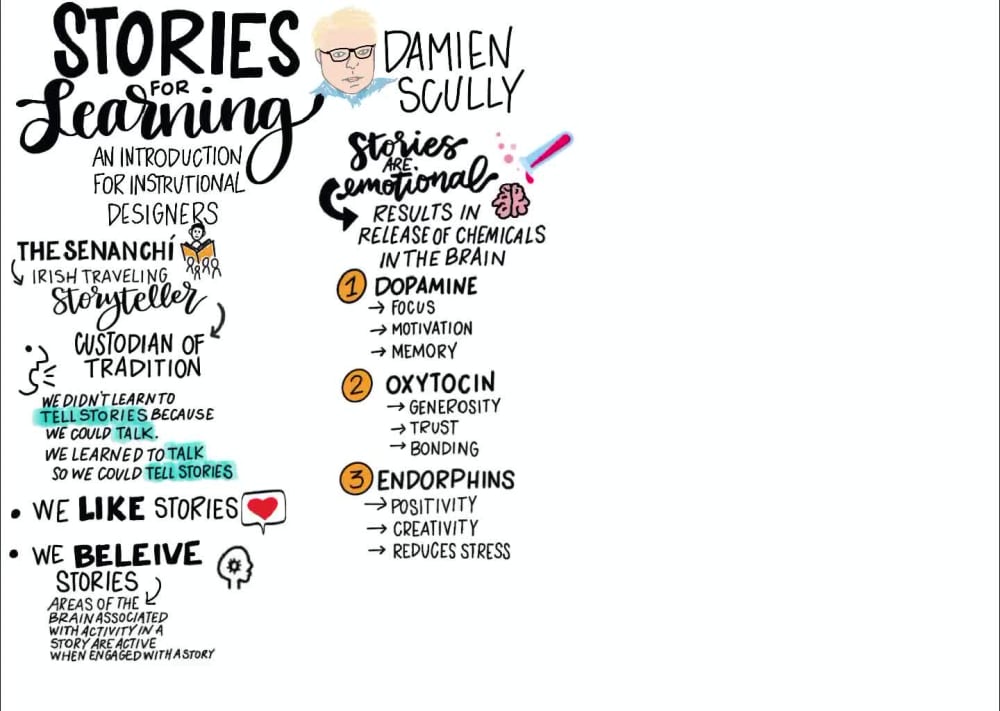 STORIES
FOR
Learning
AN INTRODUCTION
FOR INSTRUTIONAL
DESIGNERS
THE SENANCHÍ
IRISH TRAVELING
Storyteller
CUSTODIAN OF
TRADITION
WE DIDN'T LEARN TO
TELL STORIES BECAUSE
WE COULD TALK.
WE LEARNED TO TALK
SO WE COULD TELL STORIES
• WE LIKE STORIES
• WE BELEIVE
STORIES
AREAS OF THE
BRAIN ASSOCIATED
WITH ACTIVITY IN A
STORY ARE ACTIVE
WHEN ENGAGED WITH A STORY
DAMIEN
SCULLY
Stories
ARE
emotional
RESULTS IN
RELEASE OF CHEMICALS
IN THE BRAIN
1 DOPAMINE
→ FOCUS
→ MOTIVATION
→ MEMORY
2 OXYTOCIN
→ GENEROSITY
→ TRUST
→ BONDING
3 ENDORPHINS
→ POSITIVITY
→ CREATIVITY
→ REDUCES STRESS